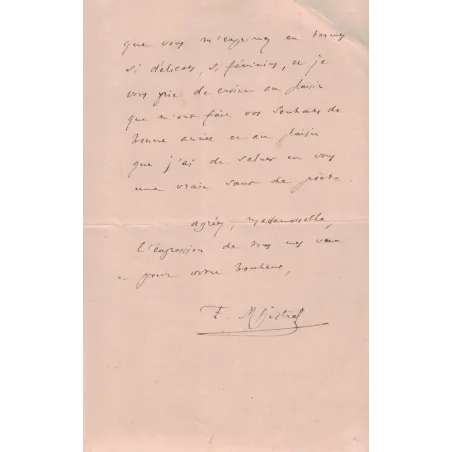 que vous m'exprimez en termes
si délicats, si féminins, et je
vous prie de croire au plaisir
que m'ont fait vos souhaits de
bonne année et au plaisir
que j'ai de saluer en vous
une vraie sœur de poète.
agréez, Mademoiselle,
l'expression de tous mes vœux
pour votre bonheur,
F. Mistral